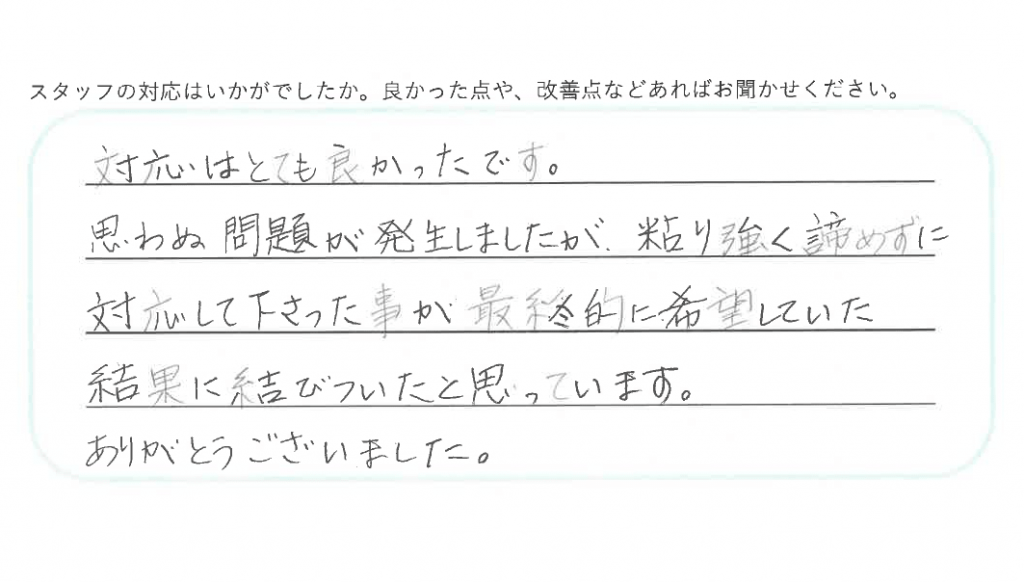 スタッフの対応はいかがでしたか。良かった点や、改善点などあればお聞かせください。
対応はとても良かったです。
思わぬ問題が発生しましたが、粘り強く諦めずに
対応して下さった事が最終的に希望していた
結果に結びついたと思っています。
ありがとうございました。